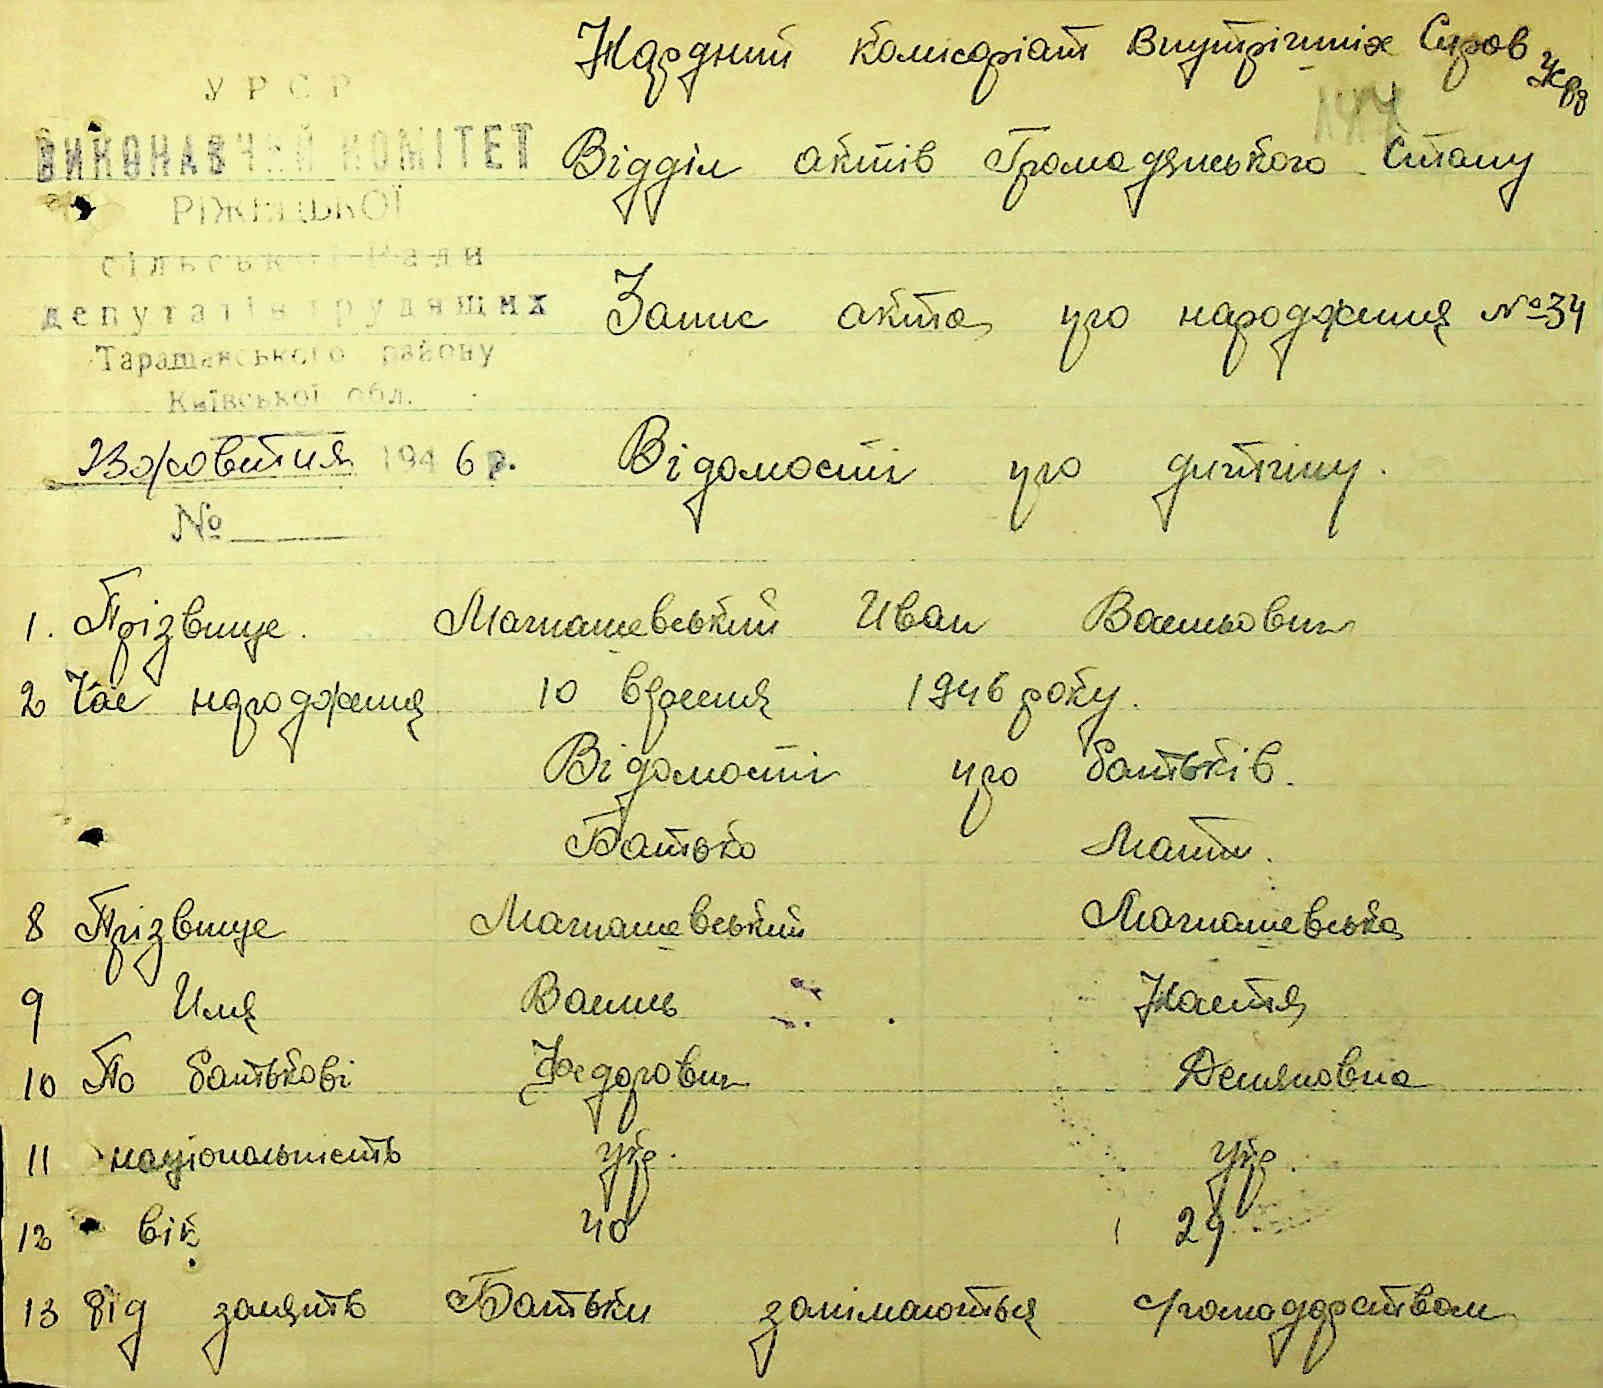 Народний комісаріат Внутрішніх Справ УСРР
УРСР
ВИКОНАВЧИЙ КОМІТЕТ
Відділ актів Громадянського Стану
РІЖКІВСЬКОЇ
сільської Ради
депутатів трудящих
Запис акта про народження №34
Таращанського району
Київської обл.
23 жовтня 1946 р. Відомості про дитину.
№
1. Прізвище. Магнашевський Иван Васильович
2 Час народження 10 вресня 1946 року.
Відомості про батьків.
Батько Мати.
8 Прізвище Магнашевський Магнашевська
9 Имя Василь Настя
10 По батькові Федорович Демяновна
11 національність укр. укр.
12 вік 40 29
13 Від занять Батьки занімаються